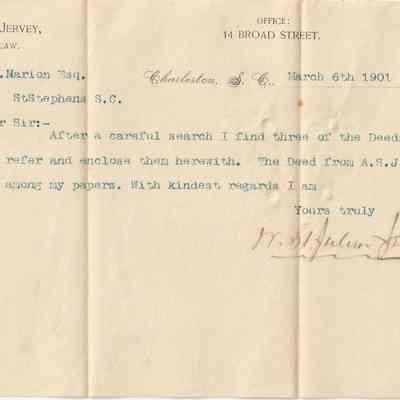 JERVEY,
LAW.
OFFICE:
14 BROAD STREET.
.Marion Esq.
Charleston, S. C., March 6th 1901
StStephens S.C.
r Sir:-
After a careful search I find three of the Deeds
refer and enclose them herewith. The Deed from A.S.J
among my papers. With kindest regards I am
Yours truly
W. St. Julien